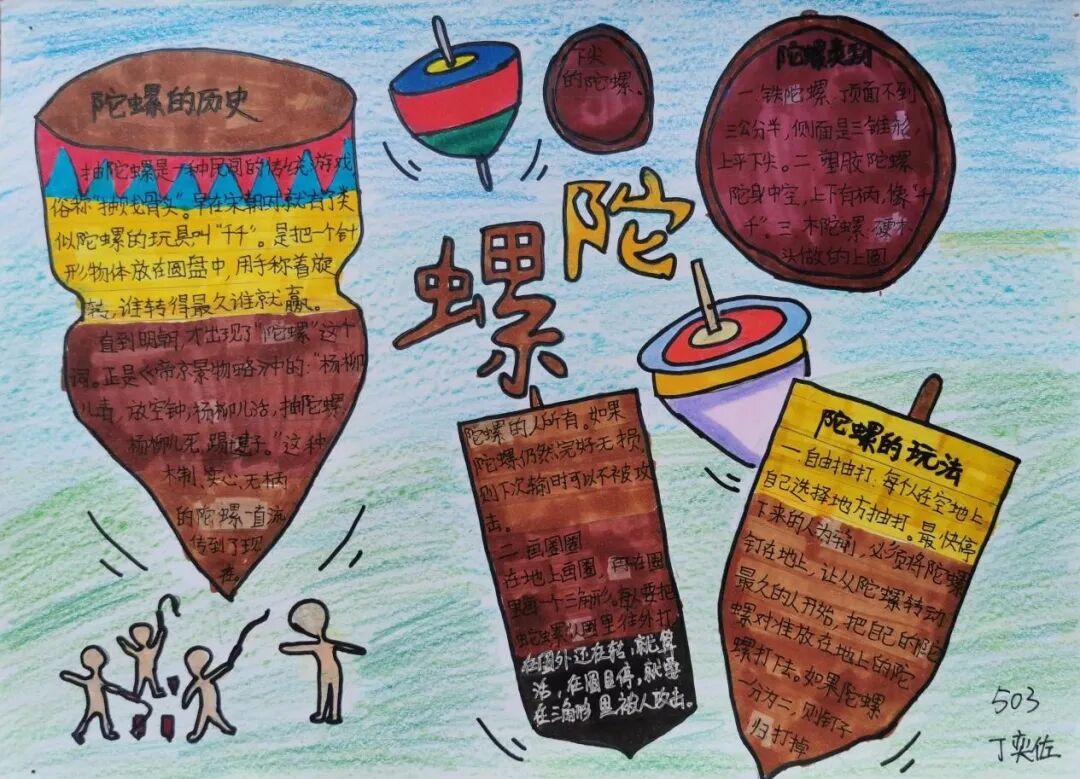 陀螺的历史
抽陀螺是一种民间的传统游戏
俗称"抽贱骨头"。早在宋朝时就有了类
似陀螺的玩具叫"千千"。是把一个针
形物体放在圆盘中,用手称着旋
转,谁转得最久谁就赢。
直到明朝,才出现了"陀螺"这个
词。正是《帝京景物略》中的:"杨柳
儿青,放空钟,杨柳儿活,抽陀螺,
杨柳儿死,踢毽子。"这种
木制、实心、无柄
的陀螺一直流
传到了现
在。
陀螺
陀螺类别
一.铁陀螺.顶面不到
三公分半,侧面是三锥形,
上平下尖。二.塑胶陀螺
陀身中空,上下有柄,像"千
千"。三.木陀螺.硬木
头做的上圆
下尖
的陀螺。
陀螺的玩法
一.自由抽打.每人在空地上
自己选择地方抽打。最快停
下来的人为输,必须将陀螺
钉在地上,让从陀螺转动
最久的人开始,把自己的陀
螺对准放在地上的陀
螺打法。如果陀螺
一分为二,则钉子
归打掉
陀螺的人所有。如果
陀螺仍然完好无损,
则下次输时可以不被攻
击。
二.画圈圈
在地上画圈,再在圈
里画一个三角形。每人要把
陀螺从圈里往外打,
在圈外还在转,就算
活,在圈里停,就要
在三角形里被人攻击。
503
丁奕佐